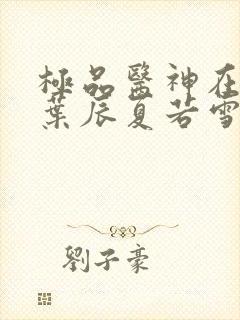 極品醫神在
葉辰夏若雪
劉子豪